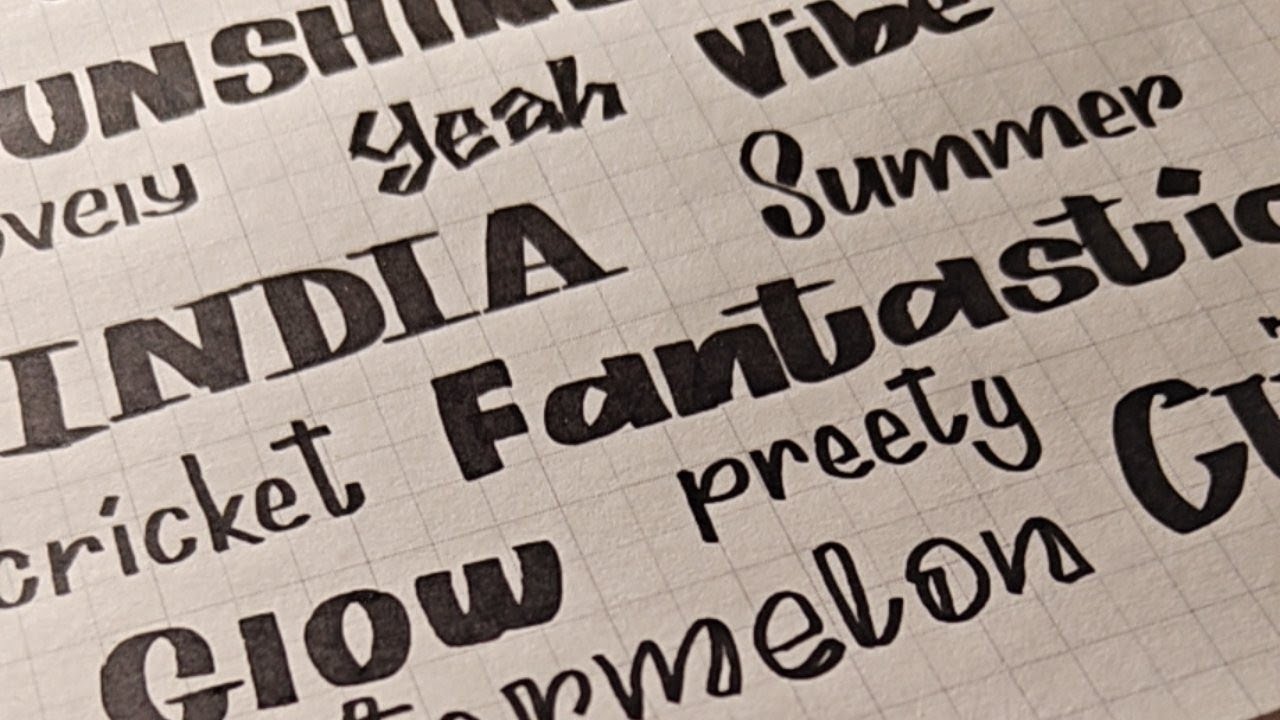 UNSHINE
Vibe
yeah
vely
Summer
INDIA
Fantastic
cricket
preety
Glow
termelon